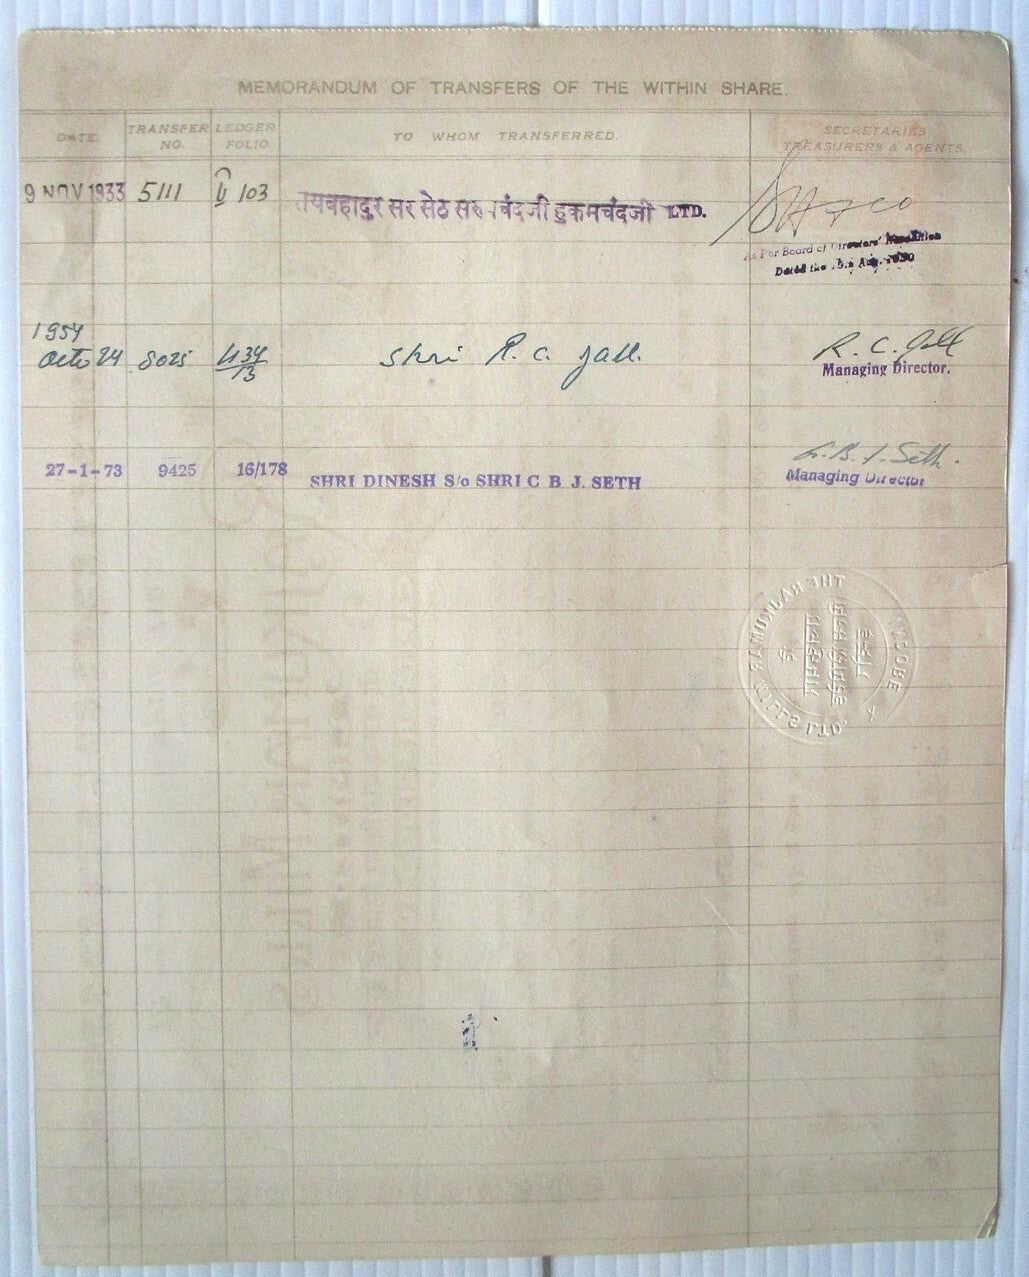 MEMORANDUM OF TRANSFERS OF THE WITHIN SHARE.
DATE TRANSFER NO. LEDGER FOLIO. TO WHOM TRANSFERRED. SECRETARIES TREASURERS & AGENTS.
9 NOV 1933 5111 103 सर सेठ हुकमचंदजी LTD.
As Per Board of Directors' Resolution
Dated the Aug. 1930
1954
Octo 24 8025 Shri R. C. Jall. R. C. Jall
Managing Director.
27-1-73 9425 16/178 SHRI DINESH S/o SHRI C B J. SETH C. B. J. Seth.
Managing Director
THE RAJKUMAR MILLS LTD. INDORE